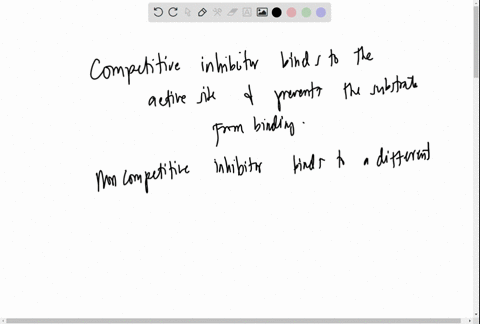 Competitive inhibitor binds to the
active site & prevents the substrate
from binding.
Noncompetitive inhibitor binds to a different